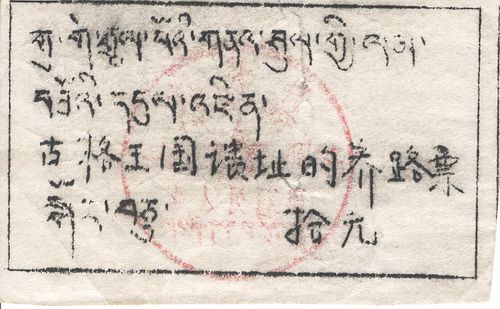 གུ་གེ་རྒྱལ་པོའི་གནའ་ཤུལ་གྱི་ལམ་
དངུལ་འཛིན་
古格王国遗址的养路票
སྒོར་བཅུ་ 拾元